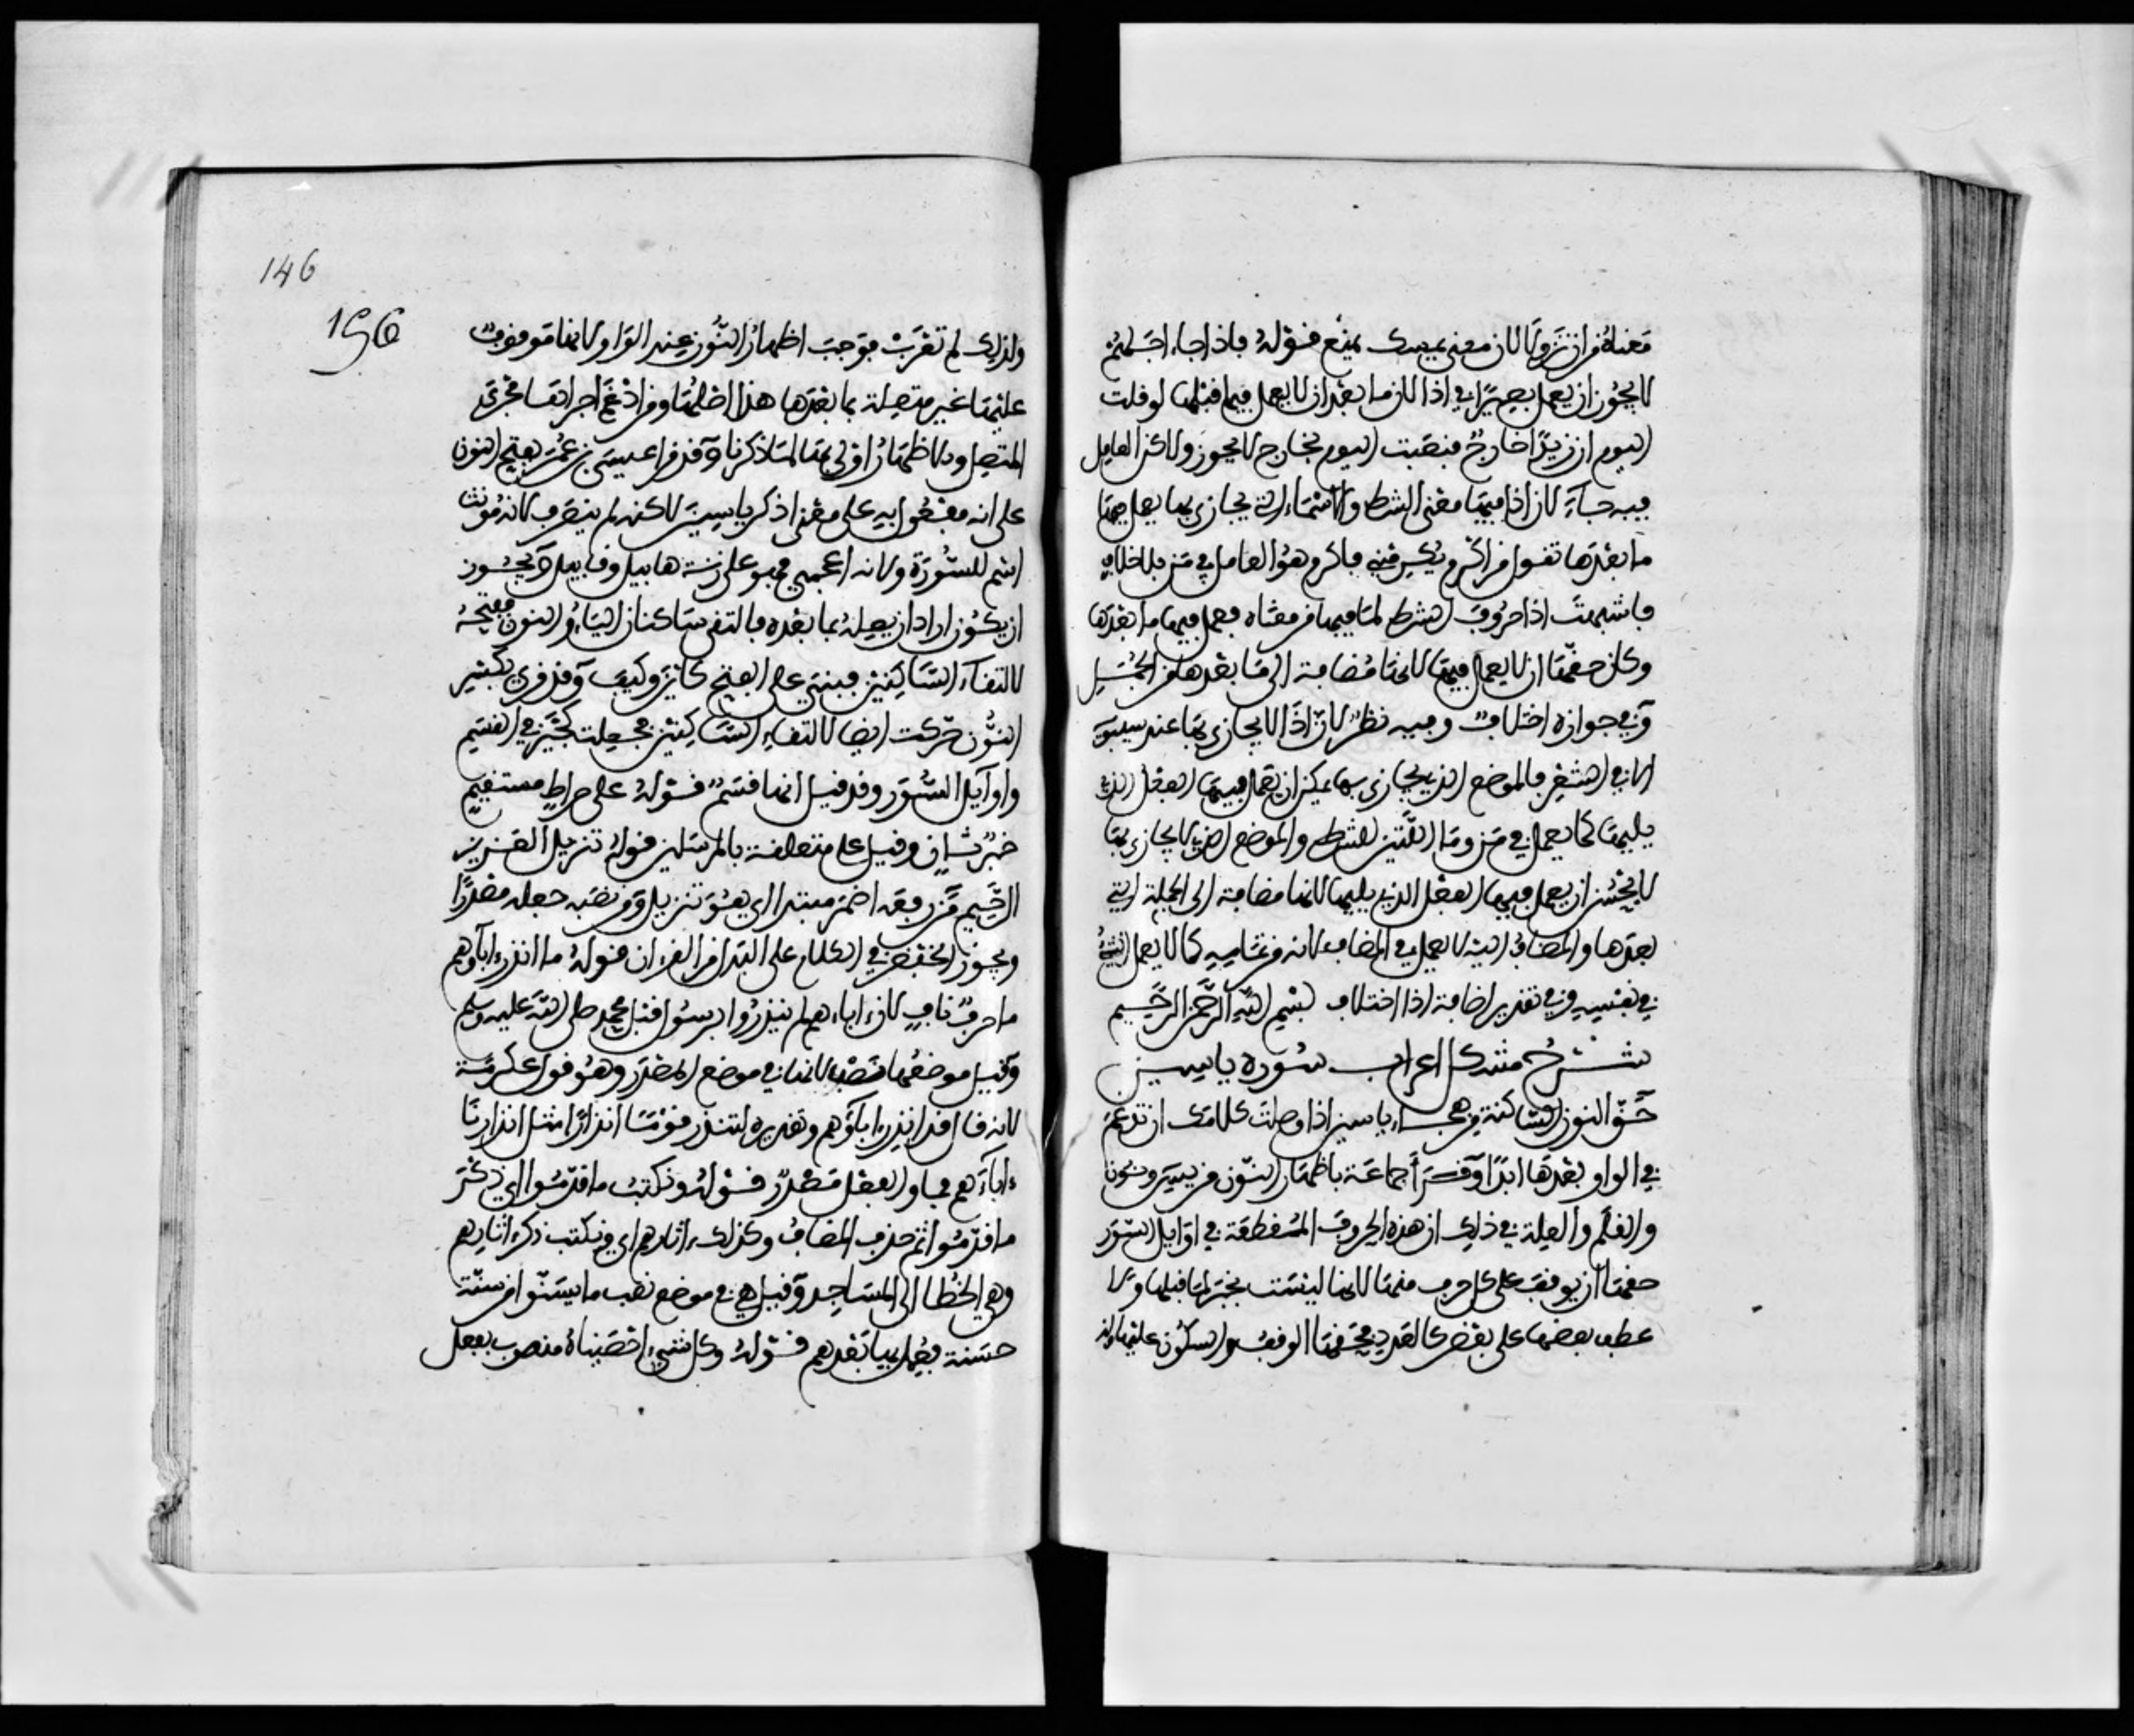 معناه من ان تزولا لان معنى يمسك يمنع قوله فاذا جاء اجلهم
لا يجوز ان يعمل بصيرا في اذا لان ما بعد ان لا يعمل فيما قبلها لو قلت
اليوم ان زيدا خارج فنصبت اليوم بخارج لا يجوز ولاكن العامل
فيه جاء لان اذا فيها معنى الشرط والاسماء التي يجازى بها يعمل فيها
ما بعدها تقول من اكرم يكرمني فاكرم هو العامل في من بلا خلاف
فاشبهت اذا حروف الشرط لما فيها من معناه فعمل فيها ما بعدها
وكان حقها ان لا يعمل فيها لانها مضافة الى ما بعدها من الجمل
وفي جوازه اختلاف وفيه نظر لان اذا لا يجازى بها عند سيبويه
الا في الشعر فالموضع الذي يجازى بها يمكن ان يعمل فيها الفعل الذي
يليها كما يعمل في من وما اللتين للشرط والموضع الذي لا يجازى بها
لا يحسن ان يعمل فيها الفعل الذي يليها لانها مضافة الى الجملة التي
بعدها والمضاف اليه لا يعمل في المضاف لانه من تمامه كما لا يعمل الشيء
في نفسه وفي تقدير اضافة اذا اختلاف بسم الله الرحمن الرحيم
شرح مشكل اعراب سورة ياسين
حق النون الساكنة من هجاء ياسين اذا وصلت كلامك ان تدغم
في الواو بعدها ابدا وقد قرا جماعة باظهار النون من يس ونون
والقلم والعلة في ذلك ان هذه الحروف المقطعة في اوايل السور
حقها ان يوقف على كل حرف منها لانها ليست بخبر لما قبلها ولا
عطف بعضها على بعض كالعدد فحقها الوقف والسكون عليها
146
156
ولذلك لم تعرب فوجب اظهار النون عند الواو لانها موقوف
عليها غير متصلة بما بعدها هذا اصلها ومن ادغم اجراها مجرى
المتصل والاظهار اولى بها لما ذكرنا وقد قرا عيسى بن عمر بفتح النون
على انه مفعول به على معنى اذكر ياسين لاكنه لم ينصرف لانه مؤنث
اسم للسورة ولانه اعجمي فهو على زنة هابيل وقابيل ويجوز
ان يكون اراد ان يصله بما بعده فالتقى ساكنان الياء والنون ففتحه
لالتقاء الساكنين فبني على الفتح كاين وكيف وقد قرئ بكسر
النون حركت ايضا لالتقاء الساكنين فجعلت كجير في القسم
واوايل السور وقد قيل انها قسم قوله على صراط مستقيم
خبر ثان وقيل على متعلقة بالمرسلين قوله تنزيل العزيز
الرحيم من رفعه اضمر مبتدا اي هو تنزيل ومن نصبه جعله مصدرا
ويجوز الخفض في الكلام على البدل من القرءان قوله ما انذر ءاباؤهم
ما حرف ناف لان ءاباءهم لم ينذروا برسول قبل محمد صلى الله عليه وسلم
وقيل موضعها نصب لانها في موضع المصدر وهو قول عكرمة
لانه قال قد انذر ءاباؤهم وتقديره لتنذر قوما انذارا مثل انذارنا
ءاباءهم فما والفعل مصدر قوله ونكتب ما قدموا اي ذكر
ما قدموا ثم حذف المضاف وكذلك ءاثارهم اي ونكتب ذكر ءاثارهم
وهي الخطا الى المساجد وقيل هي في موضع نصب ما يسنوا من سنة
حسنة فيعمل بها بعدهم قوله وكل شيء احصيناه منصوب بفعل